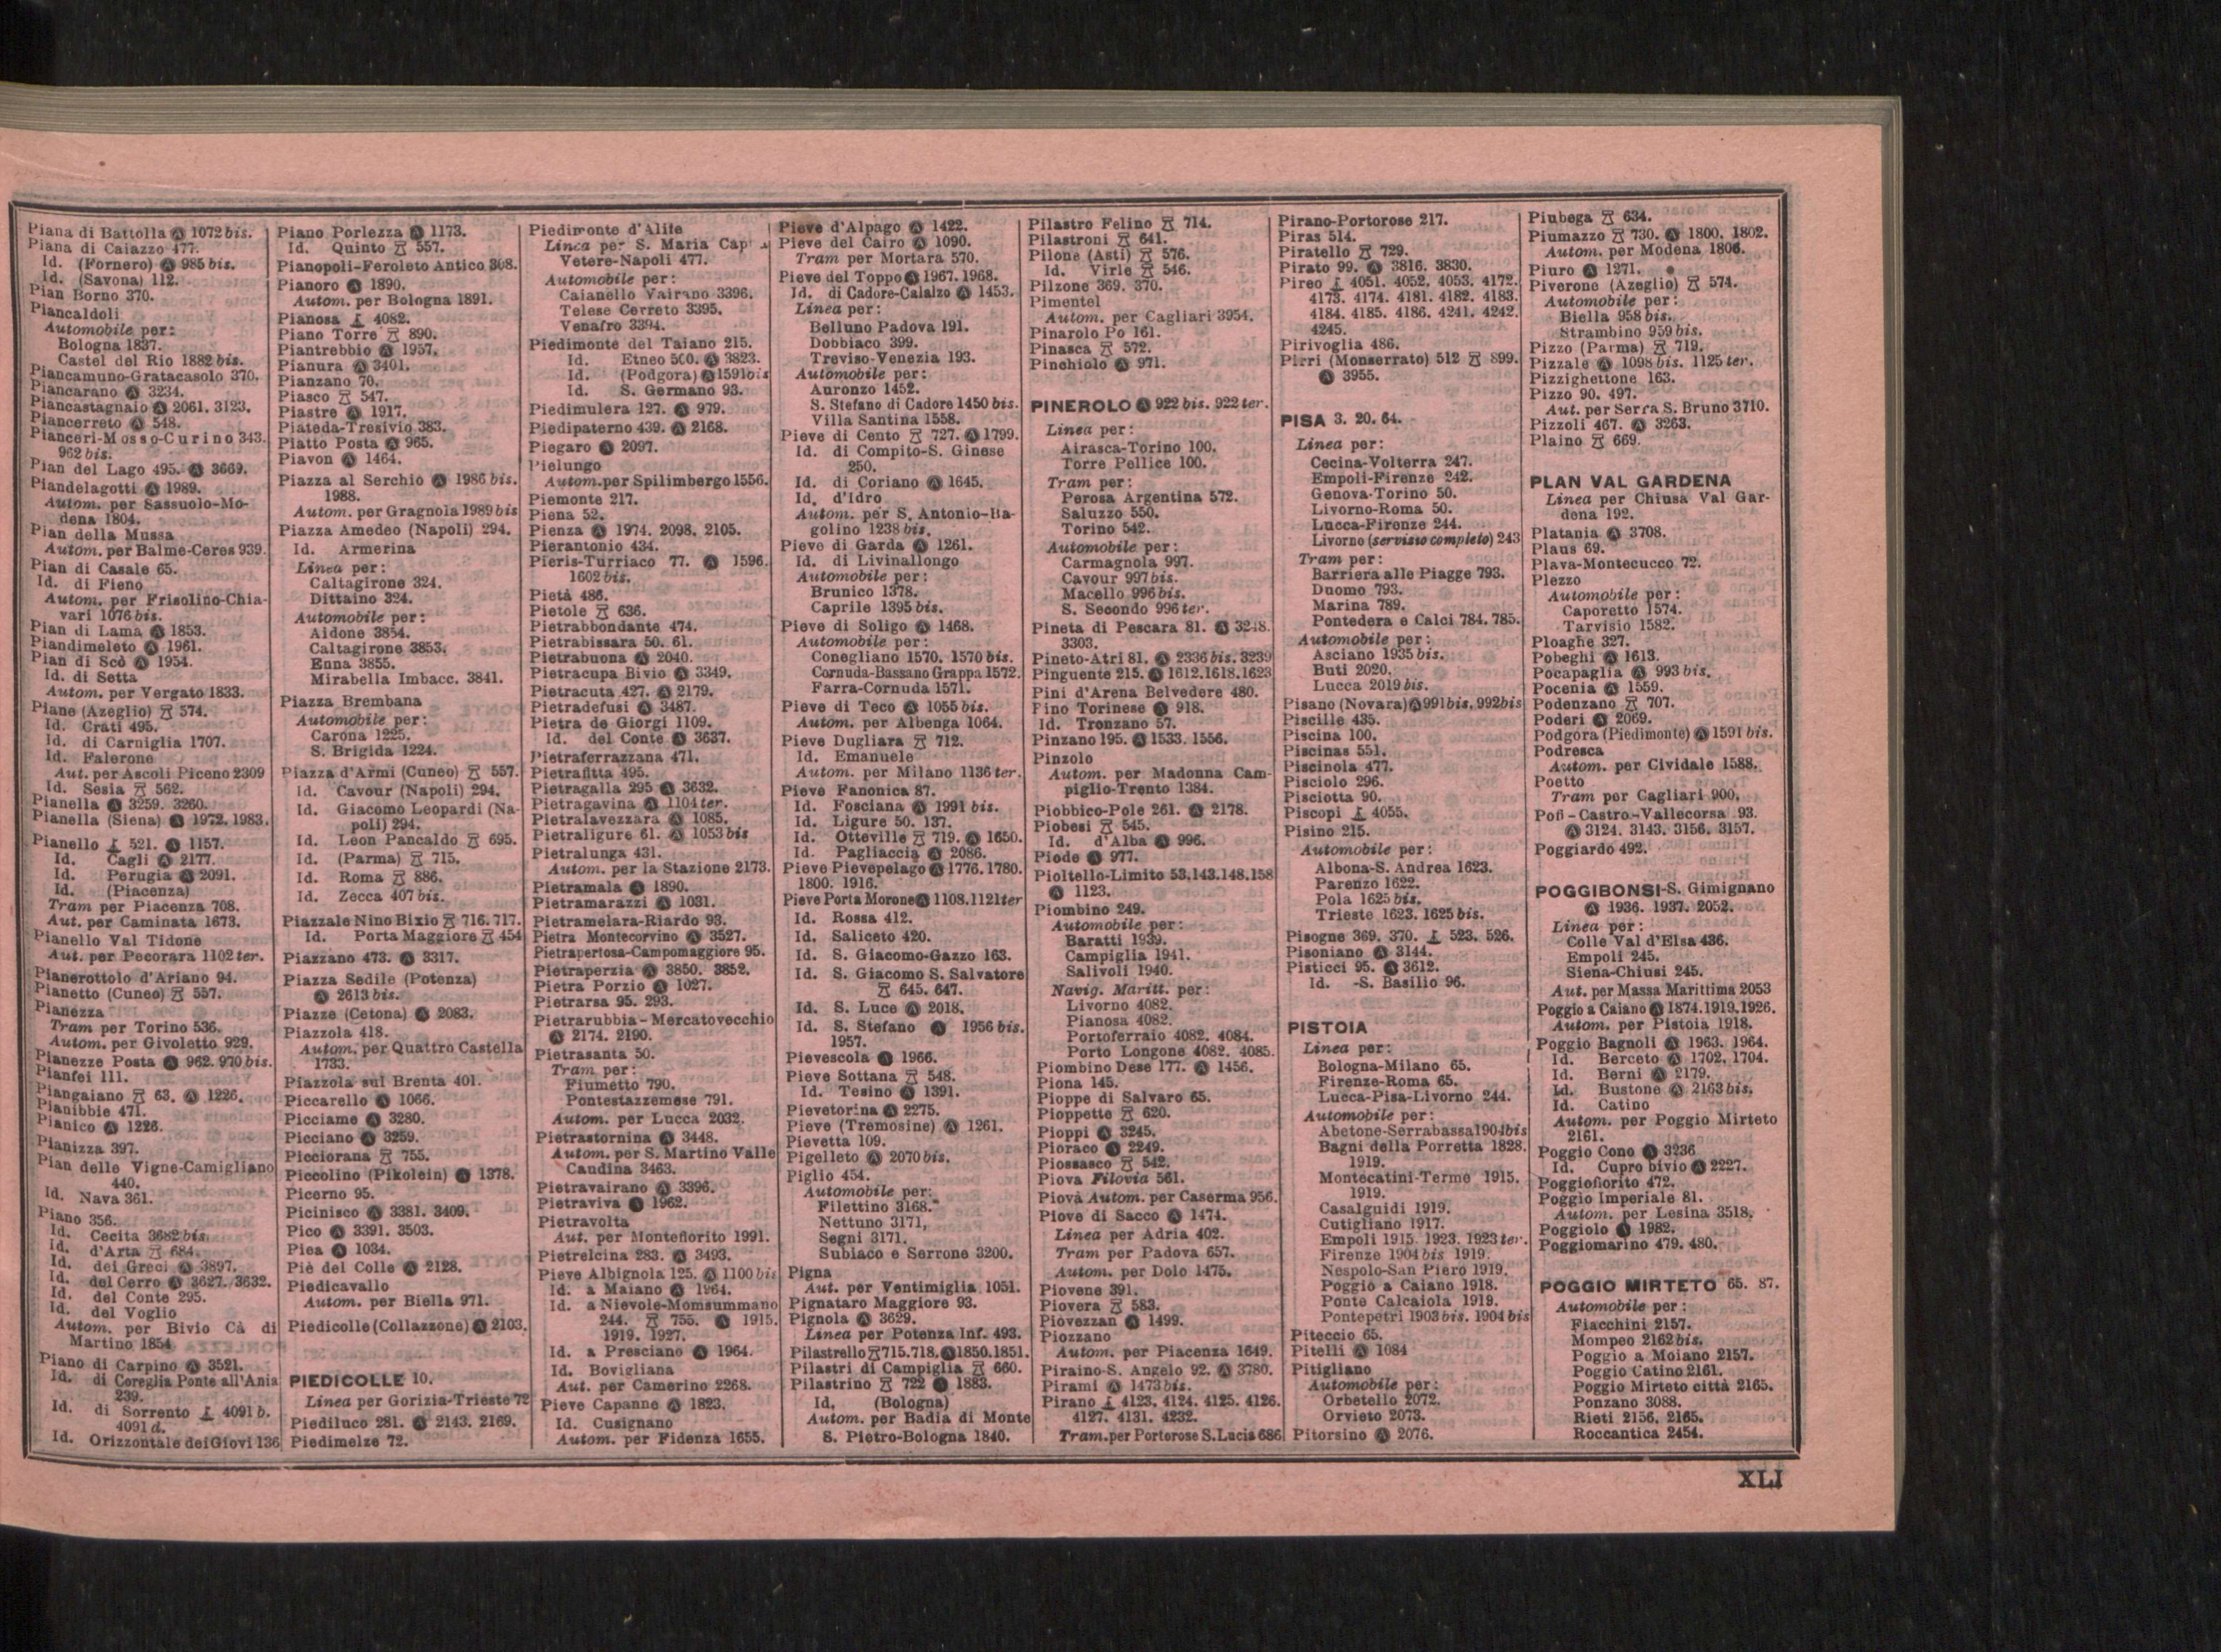 Piana di Battolla Ⓐ 1072 bis.
Piana di Caiazzo 477.
Id. (Fornero) Ⓐ 985 bis.
Id. (Savona) 112.
Pian Borno 370.
Piancaldoli
Automobile per:
Bologna 1837.
Castel del Rio 1882 bis.
Piancamuno-Gratacasolo 370.
Piancarano Ⓐ 3234.
Piancastagnaio Ⓐ 2061. 3123.
Piancerreto Ⓐ 548.
Pianceri-Mosso-Curino 343.
962 bis.
Pian del Lago 495. Ⓐ 3669.
Piandelagotti Ⓐ 1989.
Autom. per Sassuolo-Mo-
dena 1804.
Pian della Mussa
Autom. per Balme-Ceres 939.
Pian di Casale 65.
Id. di Fieno
Autom. per Frisolino-Chia-
vari 1076 bis.
Pian di Lama Ⓐ 1853.
Piandimeleto Ⓐ 1961.
Pian di Scò Ⓐ 1954.
Id. di Setta
Autom. per Vergato 1833.
Piane (Azeglio) 574.
Id. Crati 495.
Id. di Carniglia 1707.
Id. Falerone
Aut. per Ascoli Piceno 2309
Id. Sesia 562.
Pianella Ⓐ 3259. 3260.
Pianella (Siena) Ⓐ 1972. 1983.
Pianello 521. Ⓐ 1157.
Id. Cagli Ⓐ 2177.
Id. Perugia Ⓐ 2091.
Id. (Piacenza)
Tram per Piacenza 708.
Aut. per Caminata 1673.
Pianello Val Tidone
Aut. per Pecorara 1102 ter.
Pianerottolo d'Ariano 94.
Pianetto (Cuneo) 557.
Pianezza
Tram per Torino 536.
Autom. per Givoletto 929.
Pianezze Posta Ⓐ 962. 970 bis.
Pianfei 111.
Piangaiano 63. Ⓐ 1226.
Pianibbie 471.
Pianico Ⓐ 1226.
Pianizza 397.
Pian delle Vigne-Camigliano
440.
Id. Nava 361.
Piano 356.
Id. Cecita 3682 bis.
Id. d'Arta 684.
Id. dei Greci Ⓐ 3897.
Id. del Cerro Ⓐ 3627. 3632.
Id. del Conte 295.
Id. del Voglio
Autom. per Bivio Cà di
Martino 1854
Piano di Carpino Ⓐ 3521.
Id. di Coreglia Ponte all'Ania
239.
Id. di Sorrento 4091 b.
4091 d.
Id. Orizzontale dei Giovi 136
Piano Porlezza Ⓐ 1173.
Id. Quinto 557.
Pianopoli-Feroleto Antico 308.
Pianoro Ⓐ 1890.
Autom. per Bologna 1891.
Pianosa 4082.
Piano Torre 890.
Piantrebbio Ⓐ 1957.
Pianura Ⓐ 3401.
Pianzano 70.
Piasco 547.
Piastre Ⓐ 1917.
Piateda-Tresivio 383.
Piatto Posta Ⓐ 965.
Piavon Ⓐ 1464.
Piazza al Serchio Ⓐ 1986 bis.
1988.
Autom. per Gragnola 1989 bis
Piazza Amedeo (Napoli) 294.
Id. Armerina
Linea per:
Caltagirone 324.
Dittaino 324.
Automobile per:
Aidone 3854.
Caltagirone 3853.
Enna 3855.
Mirabella Imbacc. 3841.
Piazza Brembana
Automobile per:
Carona 1225.
S. Brigida 1224.
Piazza d'Armi (Cuneo) 557.
Id. Cavour (Napoli) 294.
Id. Giacomo Leopardi (Na-
poli) 294.
Id. Leon Pancaldo 695.
Id. (Parma) 715.
Id. Roma 886.
Id. Zecca 407 bis.
Piazzale Nino Bixio 716. 717.
Id. Porta Maggiore 454
Piazzano 473. Ⓐ 3317.
Piazza Sedile (Potenza)
Ⓐ 2613 bis.
Piazze (Cetona) Ⓐ 2083.
Piazzola 418.
Autom. per Quattro Castella
1733.
Piazzola sul Brenta 401.
Piccarello Ⓐ 1066.
Picciame Ⓐ 3280.
Picciano Ⓐ 3259.
Picciorana 755.
Piccolino (Pikolein) Ⓐ 1378.
Picerno 95.
Picinisco Ⓐ 3381. 3409.
Pico Ⓐ 3391. 3503.
Piea Ⓐ 1034.
Piè del Colle Ⓐ 2128.
Piedicavallo
Autom. per Biella 971.
Piedicolle (Collazzone) Ⓐ 2103.
PIEDICOLLE 10.
Linea per Gorizia-Trieste 72
Piediluco 281. Ⓐ 2143. 2169.
Piedimelze 72.
Piedimonte d'Alife
Linea per S. Maria Cap
Vetere-Napoli 477.
Automobile per:
Caianello Vairano 3396.
Telese Cerreto 3395.
Venafro 3394.
Piedimonte del Taiano 215.
Id. Etneo 500. Ⓐ 3823.
Id. (Podgora) Ⓐ 1591 bis
Id. S. Germano 93.
Piedimulera 127. Ⓐ 979.
Piedipaterno 439. Ⓐ 2168.
Piegaro Ⓐ 2097.
Pielungo
Autom. per Spilimbergo 1556.
Piemonte 217.
Piena 52.
Pienza Ⓐ 1974. 2098. 2105.
Pierantonio 434.
Pieris-Turriaco 77. Ⓐ 1596.
1602 bis.
Pietà 486.
Pietole 636.
Pietrabbondante 474.
Pietrabissara 50. 61.
Pietrabuona Ⓐ 2040.
Pietracupa Bivio Ⓐ 3349.
Pietracuta 427. Ⓐ 2179.
Pietradefusi Ⓐ 3487.
Pietra de Giorgi 1109.
Id. del Conte Ⓐ 3637.
Pietraferrazzana 471.
Pietrafitta 495.
Pietragalla 295 Ⓐ 3632.
Pietragavina Ⓐ 1104 ter.
Pietralavezzara Ⓐ 1085.
Pietraligure 61. Ⓐ 1053 bis
Pietralunga 431.
Autom. per la Stazione 2173.
Pietramala Ⓐ 1890.
Pietramarazzi Ⓐ 1031.
Pietramelara-Riardo 93.
Pietra Montecorvino Ⓐ 3527.
Pietrapertosa-Campomaggiore 95.
Pietraperzia Ⓐ 3850. 3852.
Pietra Porzio Ⓐ 1027.
Pietrarsa 95. 293.
Pietrarubbia-Mercatovecchio
Ⓐ 2174. 2190.
Pietrasanta 50.
Tram per:
Fiumetto 790.
Pontestazzemese 791.
Autom. per Lucca 2032.
Pietrastornina Ⓐ 3448.
Autom. per S. Martino Valle
Caudina 3463.
Pietravairano Ⓐ 3396.
Pietraviva Ⓐ 1962.
Pietravolta
Aut. per Montefiorito 1991.
Pietrelcina 283. Ⓐ 3493.
Pieve Albignola 125. Ⓐ 1100 bis
Id. a Maiano Ⓐ 1964.
Id. a Nievole-Momsummano
244. 755. Ⓐ 1915.
1919. 1927.
Id. a Presciano Ⓐ 1964.
Id. Bovigliana
Aut. per Camerino 2268.
Pieve Capanne Ⓐ 1823.
Id. Cusignano
Autom. per Fidenza 1655.
Pieve d'Alpago Ⓐ 1422.
Pieve del Cairo Ⓐ 1090.
Tram per Mortara 570.
Pieve del Toppo Ⓐ 1967. 1968.
Id. di Cadore-Calalzo Ⓐ 1453.
Linea per:
Belluno Padova 191.
Dobbiaco 399.
Treviso-Venezia 193.
Automobile per:
Auronzo 1452.
S. Stefano di Cadore 1450 bis.
Villa Santina 1558.
Pieve di Cento 727. Ⓐ 1799.
Id. di Compito-S. Ginese
250.
Id. di Coriano Ⓐ 1645.
Id. d'Idro
Autom. per S. Antonio-Ba-
golino 1238 bis.
Pieve di Garda Ⓐ 1261.
Id. di Livinallongo
Automobile per:
Brunico 1378.
Caprile 1395 bis.
Pieve di Soligo Ⓐ 1468.
Automobile per:
Conegliano 1570. 1570 bis.
Cornuda-Bassano Grappa 1572.
Farra-Cornuda 1571.
Pieve di Teco Ⓐ 1055 bis.
Autom. per Albenga 1064.
Pieve Dugliara 712.
Id. Emanuele
Autom. per Milano 1136 ter.
Pieve Fanonica 87.
Id. Fosciana Ⓐ 1991 bis.
Id. Ligure 50. 137.
Id. Otteville 719. Ⓐ 1650.
Id. Pagliaccia Ⓐ 2086.
Pieve Pievepelago Ⓐ 1776. 1780.
1800. 1916.
Pieve Porta Morone Ⓐ 1108. 1121 ter
Id. Rossa 412.
Id. Saliceto 420.
Id. S. Giacomo-Gazzo 163.
Id. S. Giacomo S. Salvatore
645. 647.
Id. S. Luce Ⓐ 2018.
Id. S. Stefano Ⓐ 1956 bis.
1957.
Pievescola Ⓐ 1966.
Pieve Sottana 548.
Id. Tesino Ⓐ 1391.
Pievetorina Ⓐ 2275.
Pieve (Tremosine) Ⓐ 1261.
Pievetta 109.
Pigelleto Ⓐ 2070 bis.
Piglio 454.
Automobile per:
Filettino 3168.
Nettuno 3171.
Segni 3171.
Subiaco e Serrone 3200.
Pigna
Aut. per Ventimiglia 1051.
Pignataro Maggiore 93.
Pignola Ⓐ 3629.
Linea per Potenza Inf. 493.
Pilastrello 715. 718. Ⓐ 1850. 1851.
Pilastri di Campiglia 660.
Pilastrino 722 Ⓐ 1883.
Id. (Bologna)
Autom. per Badia di Monte
S. Pietro-Bologna 1840.
Pilastro Felino 714.
Pilastroni 641.
Pilone (Asti) 576.
Id. Virle 546.
Pilzone 369. 370.
Pimentel
Autom. per Cagliari 3954.
Pinarolo Po 161.
Pinasca 572.
Pinchiolo Ⓐ 971.
PINEROLO Ⓐ 922 bis. 922 ter.
Linea per:
Airasca-Torino 100.
Torre Pellice 100.
Tram per:
Perosa Argentina 572.
Saluzzo 550.
Torino 542.
Automobile per:
Carmagnola 997.
Cavour 997 bis.
Macello 996 bis.
S. Secondo 996 ter.
Pineta di Pescara 81. Ⓐ 3248.
3303.
Pineto-Atri 81. Ⓐ 2336 bis. 3239
Pinguente 215. Ⓐ 1612. 1618. 1623
Pini d'Arena Belvedere 480.
Pino Torinese Ⓐ 918.
Id. Tronzano 57.
Pinzano 195. Ⓐ 1533. 1556.
Pinzolo
Autom. per Madonna Cam-
piglio-Trento 1384.
Piobbico-Pole 261. Ⓐ 2178.
Piobesi 545.
Id. d'Alba Ⓐ 996.
Piode Ⓐ 977.
Pioltello-Limito 53. 143. 148. 158
Ⓐ 1123.
Piombino 249.
Automobile per:
Baratti 1939.
Campiglia 1941.
Salivoli 1940.
Navig. Maritt. per:
Livorno 4082.
Pianosa 4082.
Portoferraio 4082. 4084.
Porto Longone 4082. 4085.
Piombino Dese 177. Ⓐ 1456.
Piona 145.
Pioppe di Salvaro 65.
Pioppette 620.
Pioppi Ⓐ 3245.
Pioraco Ⓐ 2249.
Piossasco 542.
Piova Filovia 561.
Piovà Autom. per Caserma 956.
Piove di Sacco Ⓐ 1474.
Linea per Adria 402.
Tram per Padova 657.
Autom. per Dolo 1475.
Piovene 391.
Piovera 583.
Piòvezzan Ⓐ 1499.
Piozzano
Autom. per Piacenza 1649.
Piraino-S. Angelo 92. Ⓐ 3780.
Pirami Ⓐ 1473 bis.
Pirano 4123. 4124. 4125. 4126.
4127. 4131. 4232.
Tram. per Portorose S. Lucia 686
Pirano-Portorose 217.
Piras 514.
Piratello 729.
Pirato 99. Ⓐ 3816. 3830.
Pireo 4051. 4052. 4053. 4172.
4173. 4174. 4181. 4182. 4183.
4184. 4185. 4186. 4241. 4242.
4245.
Pirivoglia 486.
Pirri (Monserrato) 512 899.
Ⓐ 3955.
PISA 3. 20. 64.
Linea per:
Cecina-Volterra 247.
Empoli-Firenze 242.
Genova-Torino 50.
Livorno-Roma 50.
Lucca-Firenze 244.
Livorno (servisio completo) 243
Tram per:
Barriera alle Piagge 793.
Duomo 793.
Marina 789.
Pontedera e Calci 784. 785.
Automobile per:
Asciano 1935 bis.
Buti 2020.
Lucca 2019 bis.
Pisano (Novara) Ⓐ 991 bis. 992 bis
Piscille 435.
Piscina 100.
Piscinas 551.
Piscinola 477.
Pisciolo 296.
Pisciotta 90.
Piscopi 4055.
Pisino 215.
Automobile per:
Albona-S. Andrea 1623.
Parenzo 1622.
Pola 1625 bis.
Trieste 1623. 1625 bis.
Pisogne 369. 370. 523. 526.
Pisoniano Ⓐ 3144.
Pisticci 95. Ⓐ 3612.
Id. -S. Basilio 96.
PISTOIA
Linea per:
Bologna-Milano 65.
Firenze-Roma 65.
Lucca-Pisa-Livorno 244.
Automobile per:
Abetone-Serrabassa 1904 bis
Bagni della Porretta 1828.
1919.
Montecatini-Terme 1915.
1919.
Casalguidi 1919.
Cutigliano 1917.
Empoli 1915. 1923. 1923 ter.
Firenze 1904 bis 1919.
Nespolo-San Piero 1919.
Poggio a Caiano 1918.
Ponte Calcaiola 1919.
Pontepetri 1903 bis. 1904 bis
Piteccio 65.
Pitelli Ⓐ 1084
Pitigliano
Automobile per:
Orbetello 2072.
Orvieto 2073.
Pitorsino Ⓐ 2076.
Piubega 634.
Piumazzo 730. Ⓐ 1800. 1802.
Autom. per Modena 1806.
Piuro Ⓐ 1271.
Piverone (Azeglio) 574.
Automobile per:
Biella 958 bis.
Strambino 959 bis.
Pizzo (Parma) 719.
Pizzale Ⓐ 1098 bis. 1125 ter.
Pizzighettone 163.
Pizzo 90. 497.
Aut. per Serra S. Bruno 3710.
Pizzoli 467. Ⓐ 3263.
Plaino 669.
PLAN VAL GARDENA
Linea per Chiusa Val Gar-
dena 192.
Platania Ⓐ 3708.
Plaus 69.
Plava-Montecucco 72.
Plezzo
Automobile per:
Caporetto 1574.
Tarvisio 1582.
Ploaghe 327.
Pobeghi Ⓐ 1613.
Pocapaglia Ⓐ 993 bis.
Pocenia Ⓐ 1559.
Podenzano 707.
Poderi Ⓐ 2069.
Podgora (Piedimonte) Ⓐ 1591 bis.
Podresca
Autom. per Cividale 1588.
Poetto
Tram per Cagliari 900.
Pofi-Castro-Vallecorsa 93.
Ⓐ 3124. 3143. 3156. 3157.
Poggiardo 492.
POGGIBONSI-S. Gimignano
Ⓐ 1936. 1937. 2052.
Linea per:
Colle Val d'Elsa 436.
Empoli 245.
Siena-Chiusi 245.
Aut. per Massa Marittima 2053
Poggio a Caiano Ⓐ 1874. 1919. 1926.
Autom. per Pistoia 1918.
Poggio Bagnoli Ⓐ 1963. 1964.
Id. Berceto Ⓐ 1702. 1704.
Id. Berni Ⓐ 2179.
Id. Bustone Ⓐ 2163 bis.
Id. Catino
Autom. per Poggio Mirteto
2161.
Poggio Cono Ⓐ 3236
Id. Cupro bivio Ⓐ 2227.
Poggiofiorito 472.
Poggio Imperiale 81.
Autom. per Lesina 3518.
Poggiolo Ⓐ 1982.
Poggiomarino 479. 480.
POGGIO MIRTETO 65. 87.
Automobile per:
Fiacchini 2157.
Mompeo 2162 bis.
Poggio a Moiano 2157.
Poggio Catino 2161.
Poggio Mirteto città 2165.
Ponzano 3088.
Rieti 2156. 2165.
Roccantica 2454.
XLI